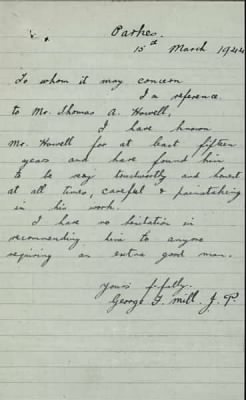 Parkes.
15th March 1944
To whom it may concern
I a reference
to Mr. Thomas A. Howell,
I have known
Mr. Howell for at least fifteen
years and have found him
to be very trustworthy and honest
at all times, careful & painstaking
in his work.
I have no hesitation in
recommending him to anyone
requiring an extra good man.
yours f-fully.
George G. Mill. J. P